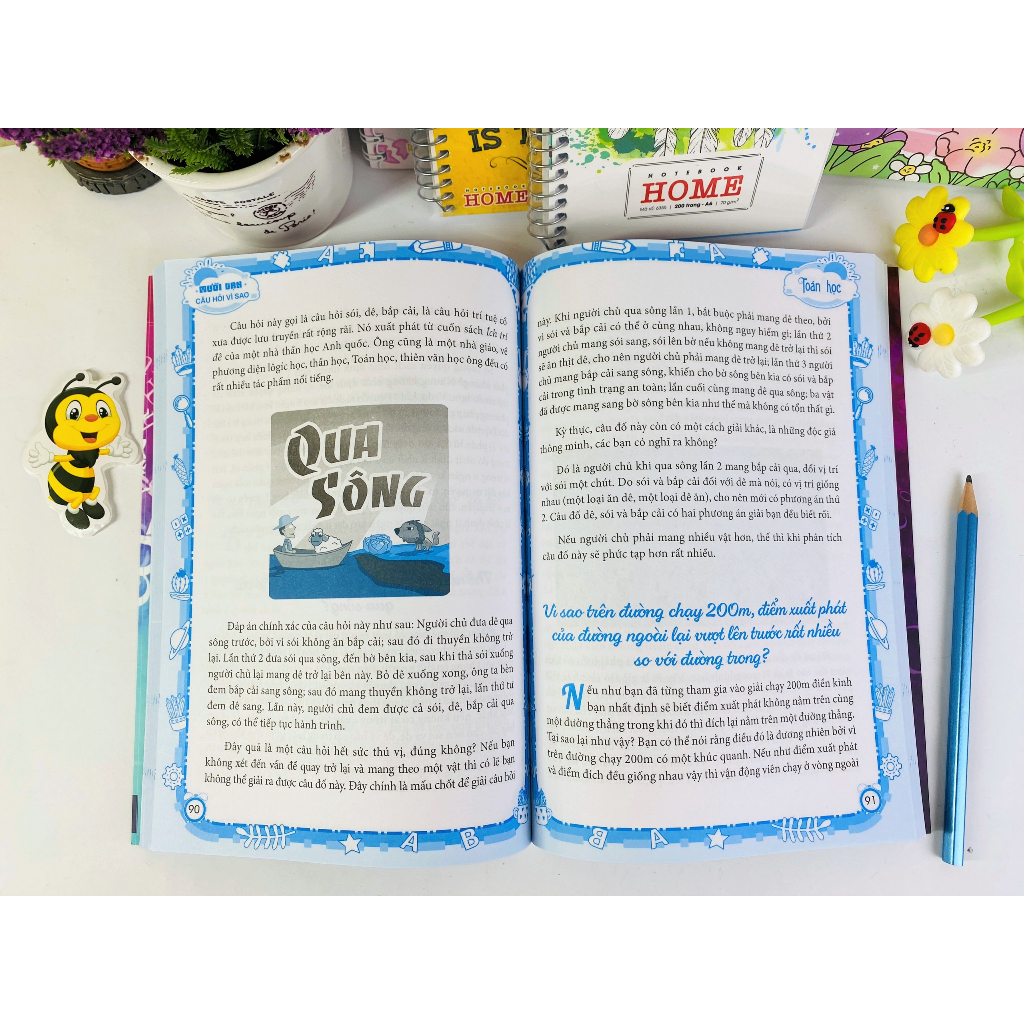 IS
NOTEBOOK
HOME
NOTEBOOK
HOME
200 trang - A6
POSTALE
MƯỜI VẠN
CÂU HỎI VÌ SAO
Câu hỏi này gọi là câu hỏi sói, dê, bắp cải, là câu hỏi trí tuệ cổ
xưa được lưu truyền rất rộng rãi. Nó xuất phát từ cuốn sách Ích trí
đê của một nhà thần học Anh quốc. Ông cũng là một nhà giáo, về
phương diện lôgic học, thần học, Toán học, thiên văn học ông đều có
rất nhiều tác phẩm nổi tiếng.
QUA
SÔNG
Đáp án chính xác của câu hỏi này như sau: Người chủ đưa dê qua
sông trước, bởi vì sói không ăn bắp cải; sau đó đi thuyền không trở
lại. Lần thứ 2 đưa sói qua sông, đến bờ bên kia, sau khi thả sói xuống
người chủ lại mang dê trở lại bên này. Bỏ dê xuống xong, ông ta bèn
đem bắp cải sang sông; sau đó mang thuyền không trở lại, lần thứ tư
đem dê sang. Lần này, người chủ đem được cả sói, dê, bắp cải qua
sông, có thể tiếp tục hành trình.
Đây quả là một câu hỏi hết sức thú vị, đúng không? Nếu bạn
không xét đến vấn đề quay trở lại và mang theo một vật thì có lẽ bạn
không thể giải ra được câu đố này. Đây chính là mấu chốt để giải câu hỏi
90
A
B
Toán học
này. Khi người chủ qua sông lần 1, bắt buộc phải mang dê theo, bởi
vì sói và bắp cải có thể ở cùng nhau, không nguy hiểm gì; lần thứ 2
người chủ mang sói sang, sói lên bờ nếu không mang dê trở lại thì sói
sẽ ăn thịt dê, cho nên người chủ phải mang dê trở lại; lần thứ 3 người
chủ mang bắp cải sang sông, khiến cho bờ sông bên kia có sói và bắp
cải trong tình trạng an toàn; lần cuối cùng mang dê qua sông; ba vật
đã được mang sang bờ sông bên kia như thế mà không có tổn thất gì.
Kỳ thực, câu đố này còn có một cách giải khác, là những độc giả
thông minh, các bạn có nghĩ ra không?
Đó là người chủ khi qua sông lần 2 mang bắp cải qua, đổi vị trí
với sói một chút. Do sói và bắp cải đối với dê mà nói, có vị trí giống
nhau (một loại ăn dê, một loại dê ăn), cho nên mới có phương án thứ
2. Câu đố dê, sói và bắp cải có hai phương án giải bạn đều biết rồi.
Nếu người chủ phải mang nhiều vật hơn, thế thì khi phân tích
câu đố này sẽ phức tạp hơn rất nhiều.
Vì sao trên đường chạy 200m, điểm xuất phát
của đường ngoài lại vượt lên trước rất nhiều
so với đường trong?
Nếu như bạn đã từng tham gia vào giải chạy 200m điền kinh
bạn nhất định sẽ biết điểm xuất phát không nằm trên cùng
một đường thẳng trong khi đó thì đích lại nằm trên một đường thẳng.
Tại sao lại như vậy? Bạn có thể nói rằng điều đó là đương nhiên bởi vì
trên đường chạy 200m có một khúc quanh. Nếu như điểm xuất phát
và điểm đích đều giống nhau vậy thì vận động viên chạy ở vòng ngoài
91
B
A